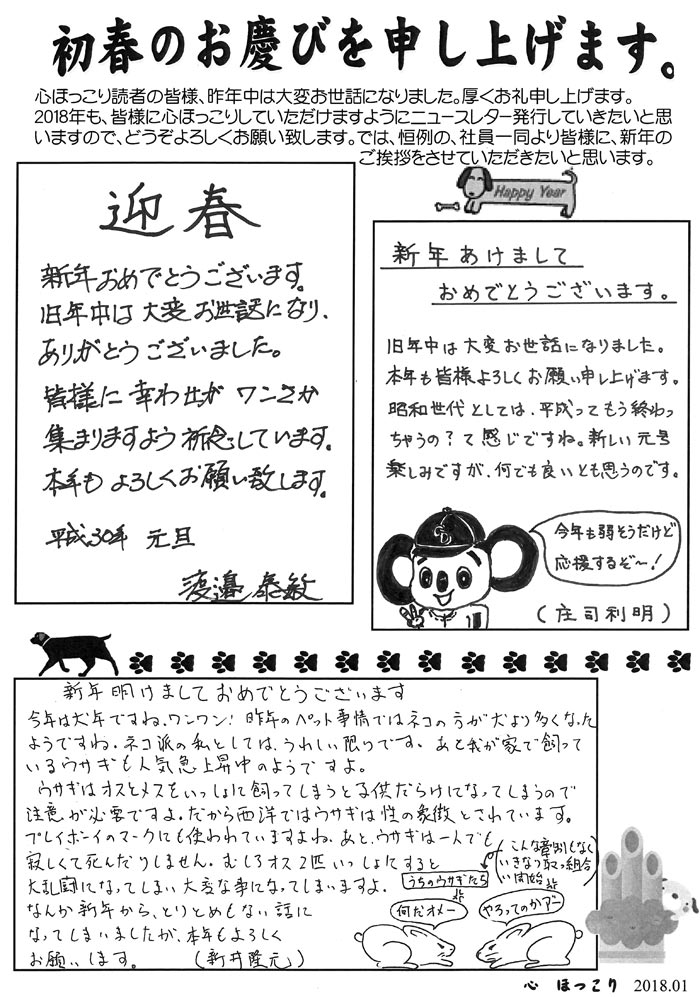 初春のお慶びを申し上げます。
心ほっこり読者の皆様、昨年中は大変お世話になりました。厚くお礼申し上げます。
2018年も、皆様に心ほっこりしていただけますようにニュースレター発行していきたいと思
いますので、どうぞよろしくお願い致します。では、恒例の、社員一同より皆様に、新年の
ご挨拶をさせていただきたいと思います。
Happy Year
迎春
新年おめでとうございます。
旧年中は大変お世話になり、
ありがとうございました。
皆様に幸わせが ワンさか
集まりますよう祈念しています。
本年もよろしくお願い致します。
平成30年 元旦
渡邉 泰敏
新年あけまして
おめでとうございます。
旧年中は大変お世話になりました。
本年も皆様よろしくお願い申し上げます。
昭和世代としては、平成ってもう終わっ
ちゃうの?て感じですね。新しい元号
楽しみですが、何でも良いとも思うのです。
今年も弱そうだけど
応援するぞ〜!
(庄司利明)
新年明けましておめでとうございます
今年は犬年ですね、ワンワン! 昨年のペット事情ではネコの方が犬より多くなった
ようですね。ネコ派の私としては、うれしい限りです。あと我が家で飼って
いるウサギも人気急上昇中のようですよ。
ウサギはオスとメスをいっしょに飼ってしまうと子供だらけになってしまうので
注意が必要ですよ。だから西洋ではウサギは性の象徴とされています。
プレイボーイのマークにも使われていますよね、あと、ウサギは一人でも
寂しくて死んだりしません。むしろオス2匹いっしょにすると
大乱闘になってしまい大変な事になってしまいますよ。
なんか新年から、とりとめもない話に
なってしまいましたが、本年もよろしく
お願いします。 (新井隆元)
こんな
いきなり取っ組合
い開始
うちのウサギたち
何だオメー
やろってのかアー
心 ほっこり 2018.01